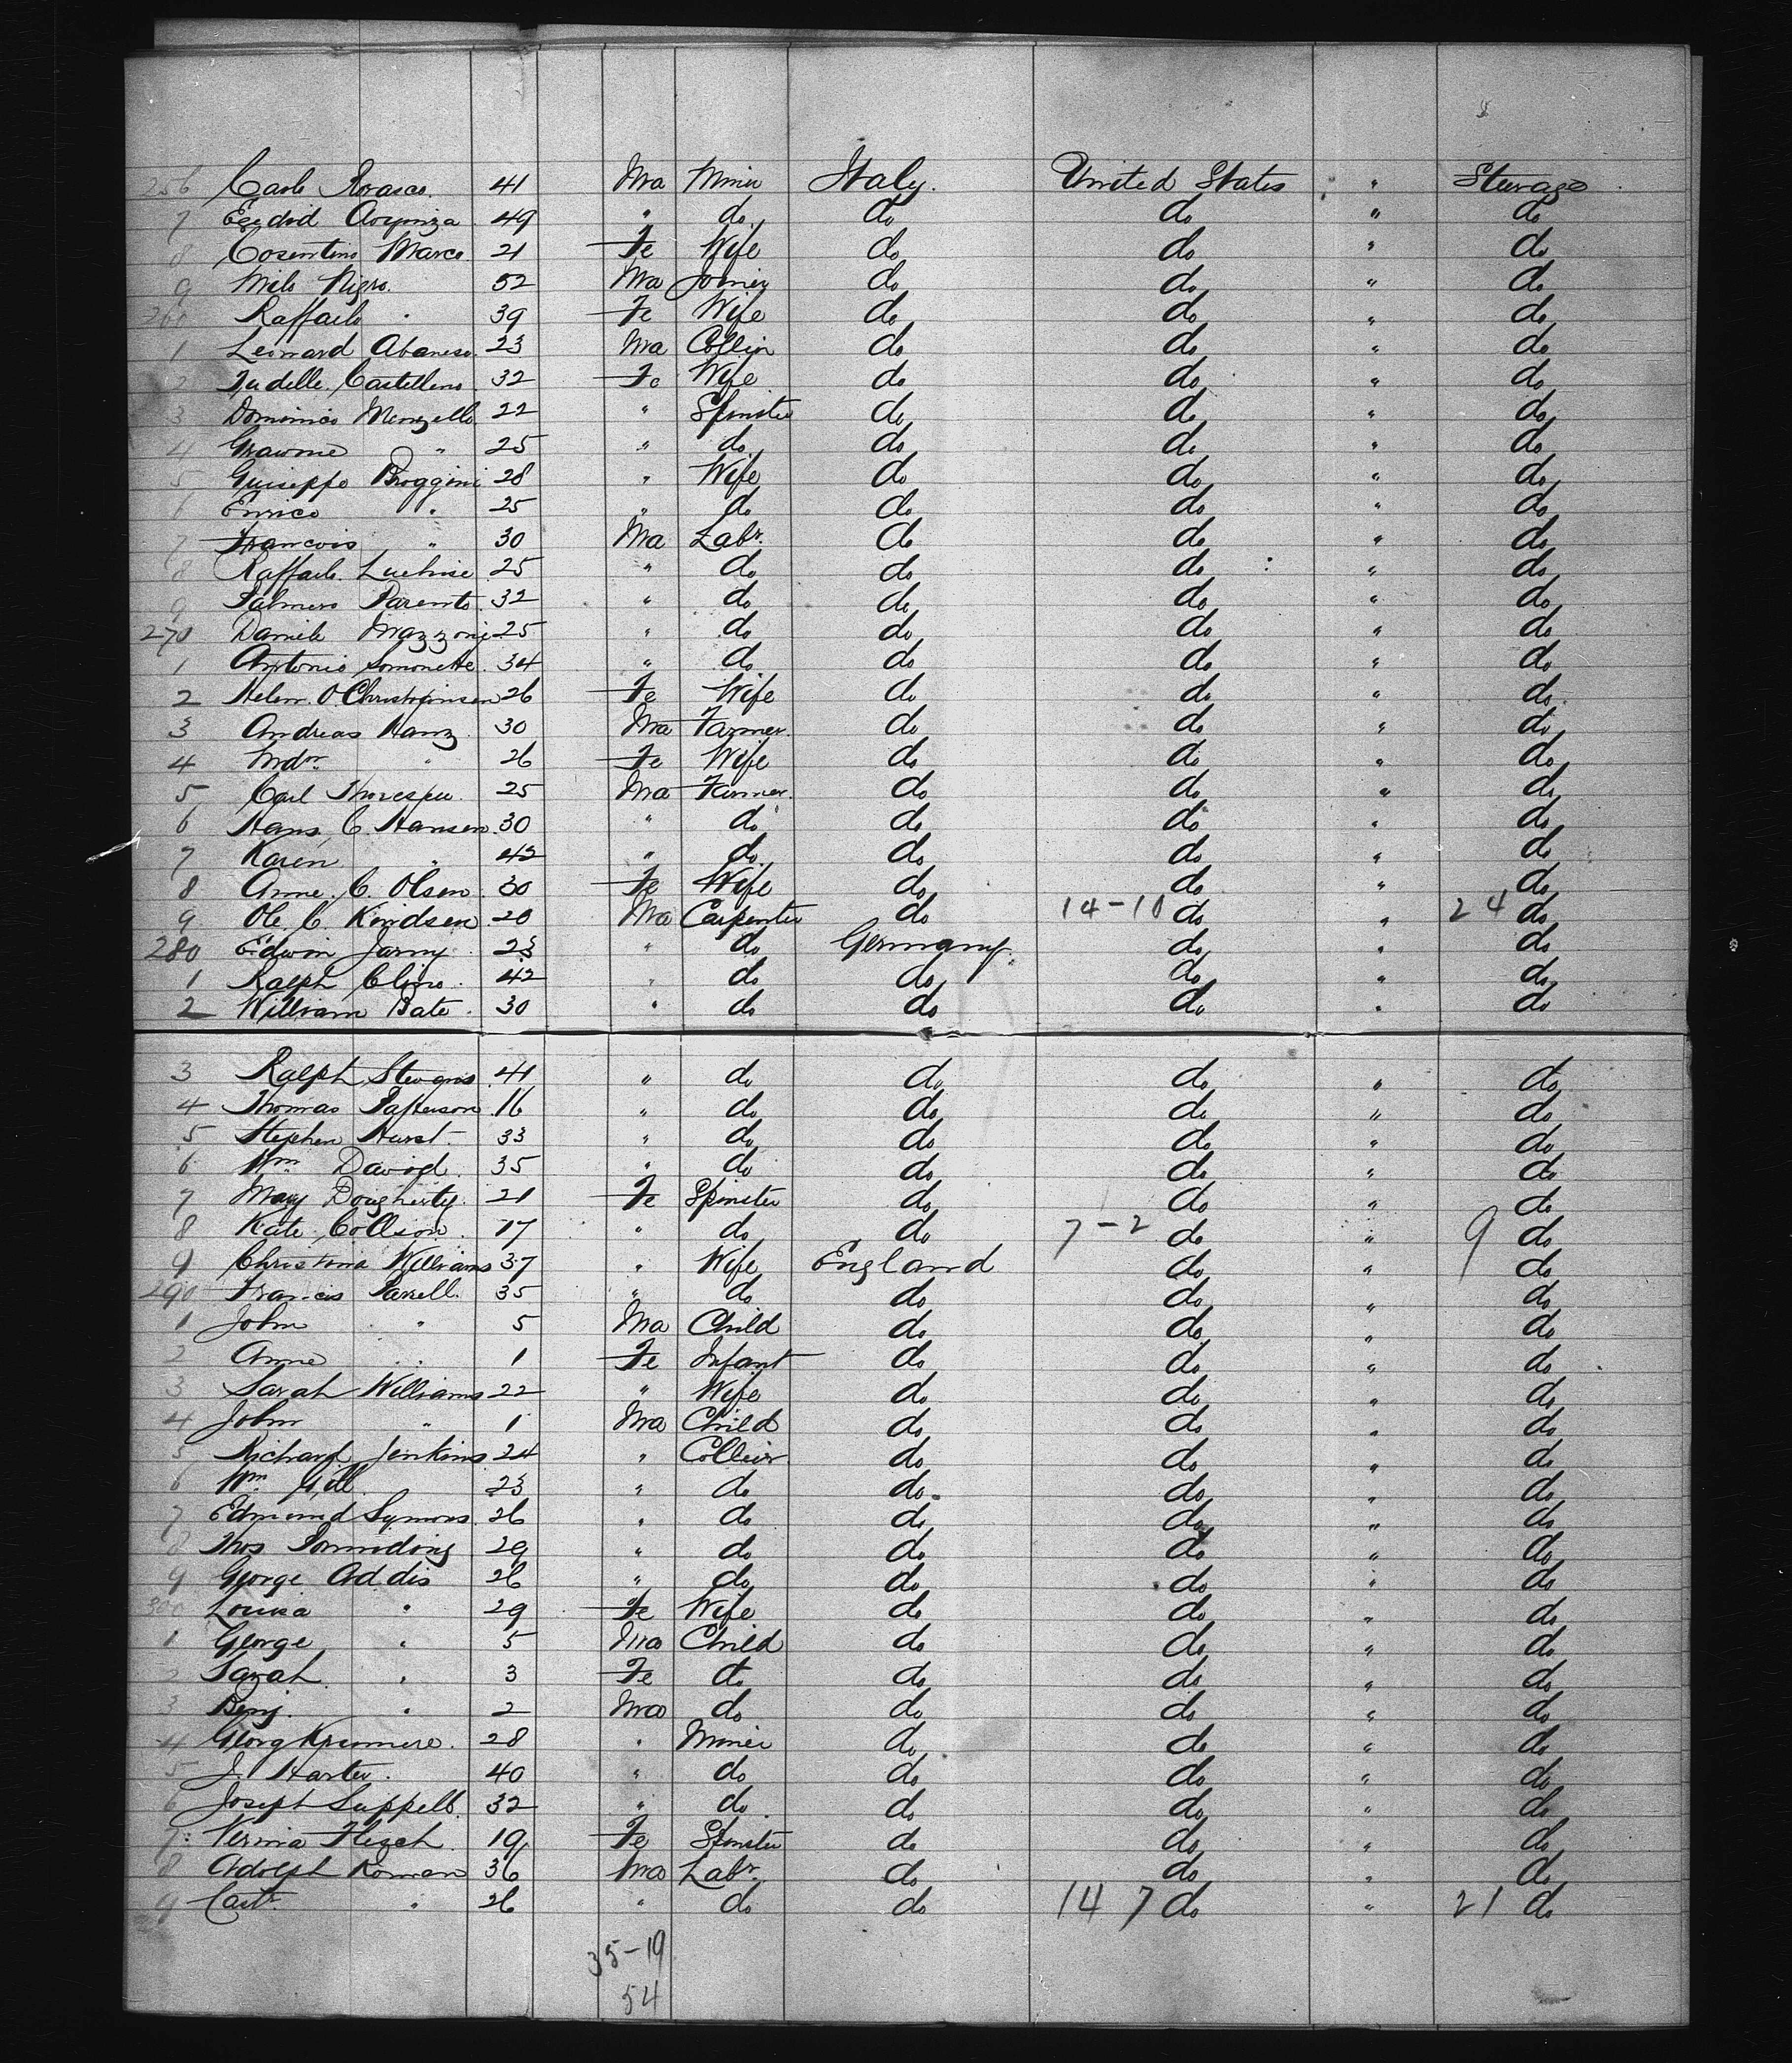 256 Carlo Rovasco. 41 Ma Miner Italy. United States " Steerage
7 Egidid 49 " do do do " do
8 Cosentino Marco 21 Fe Wife do do " do
9 Milo Nigro. 52 Ma Joiner do do " do
260 Raffaelo " 39 Fe Wife do do " do
1 Leonard Abaneso. 23 Ma Collier do do " do
2 Castelleno. 32 Fe Wife do do " do
3 Dominico Menzello. 22 " Spinster do do " do
4 " 25 " do do do " do
5 Guiseppe Broggini 28 " Wife do do " do
6 Enrico " 25 " do do do " do
7 Francois " 30 Ma Labr. do do " do
8 Raffaelo. 25 " do do do " do
9 Palmero Parento. 32 " do do do " do
270 Daniele Mazzoni 25 " do do do " do
1 Antonio Somonette. 34 " do do do " do
2 Helen. O Christiansen 26 Fe Wife do do " do
3 Andreas Hanz 30 Ma Farmer. do do " do
4 " 26 Fe Wife do do " do
5 Carl 25 Ma Farmer. do do " do
6 Hans. C. Hansen. 30 " do do do " do
7 Karen " 42 " do do do " do
8 Anne. C. Olsen. 30 Fe Wife do do " do
9 Ole. C. Kindsen. 20 Ma Carpenter do 14-10 do " 24 do
280 Edwin Jarny 23 " do Germany. do " do
1 Ralph Cline. 42 " do do do " do
2 William Bate. 30 " do do do " do
3 Ralph Stevens. 41 " do do do " do
4 Thomas Patterson 16 " do do do " do
5 Stephen Hurst. 33 " do do do " do
6 Wm David. 35 " do do do " do
7 Mary Dougherty. 21 Fe Spinster do do " do
8 Kate Collison. 17 " do do 7-2 do " 9 do
9 Christina Williams 37 " Wife England do " do
290 Francis Parrell. 35 " do do do " do
1 John " 5 Ma Child do do " do
2 Anne " 1 Fe Infant do do " do
3 Sarah Williams 22 " Wife do do " do
4 John " 1 Ma Child do do " do
5 Richard Jenkins 24 " Collier do do " do
6 Wm Gill. 23 " do do do " do
7 Edmund Symons. 26 " do do do " do
8 Thos 29 " do do do " do
9 George Addis 26 " do do do " do
300 Louisa " 29 Fe Wife do do " do
1 George " 5 Ma Child do do " do
2 Sarah " 3 Fe do do do " do
3 Benj. " 2 Ma do do do " do
4 Georg 28 " Miner do do " do
5 J. Harter. 40 " do do do " do
6 Joseph Suppell. 32 " do do do " do
7 Flesch. 19 Fe Spinster do do " do
8 Adolph Roman 36 Ma Labr. do do " do
9 " 26 " do do 14 7 do " 21 do
35-19
54